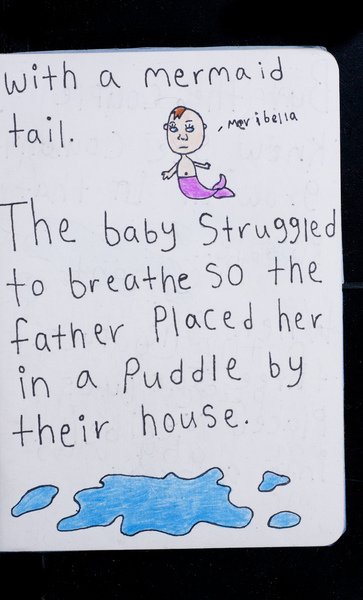 with a mermaid
tail.
, Meribella
The baby Struggled
to breathe so the
father Placed her
in a Puddle by
their house.